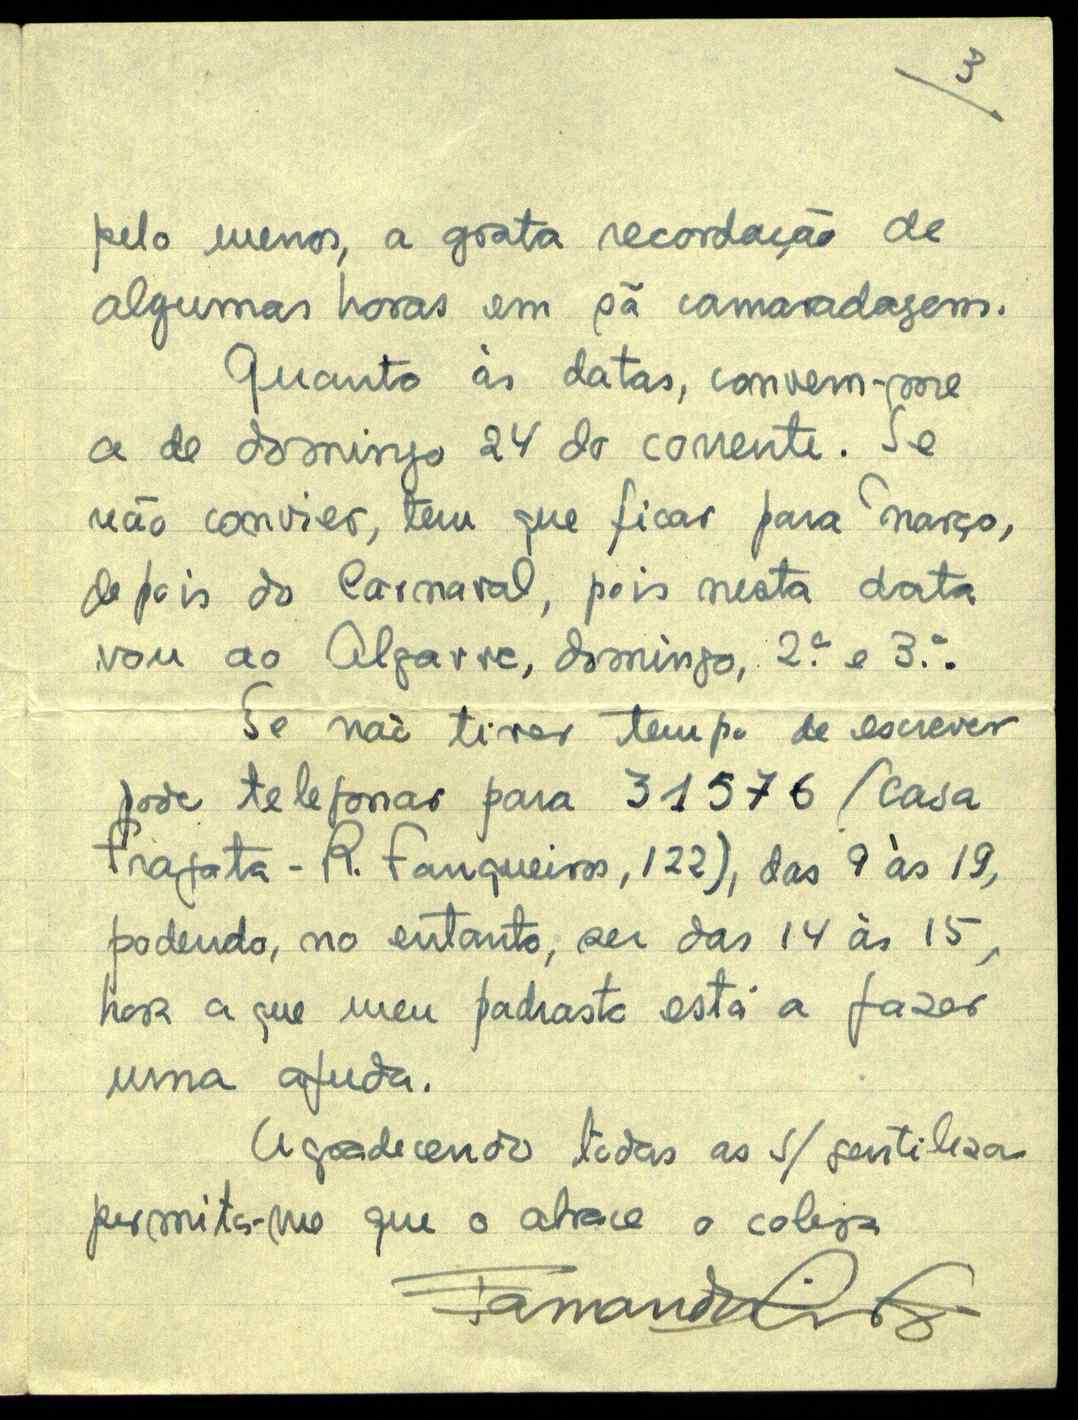 3
pelo menos, a grata recordação de
algumas horas em sã camaradagem.
Quanto às datas, convem-me
a de domingo 24 do corrente. Se
não convier, tem que ficar para Março,
depois do Carnaval, pois nesta data
vou ao Algarve, domingo, 2.ª e 3.ª.
Se não tiver tempo de escrever
pode telefonar para 31576 (Casa
Fragata - R. Fanqueiros, 122), das 9 às 19,
podendo, no entanto, ser das 14 às 15,
hora a que meu padrasto está a fazer
uma ajuda.
Agradecendo todas as s/ gentilezas
permita-me que o abrace o colega